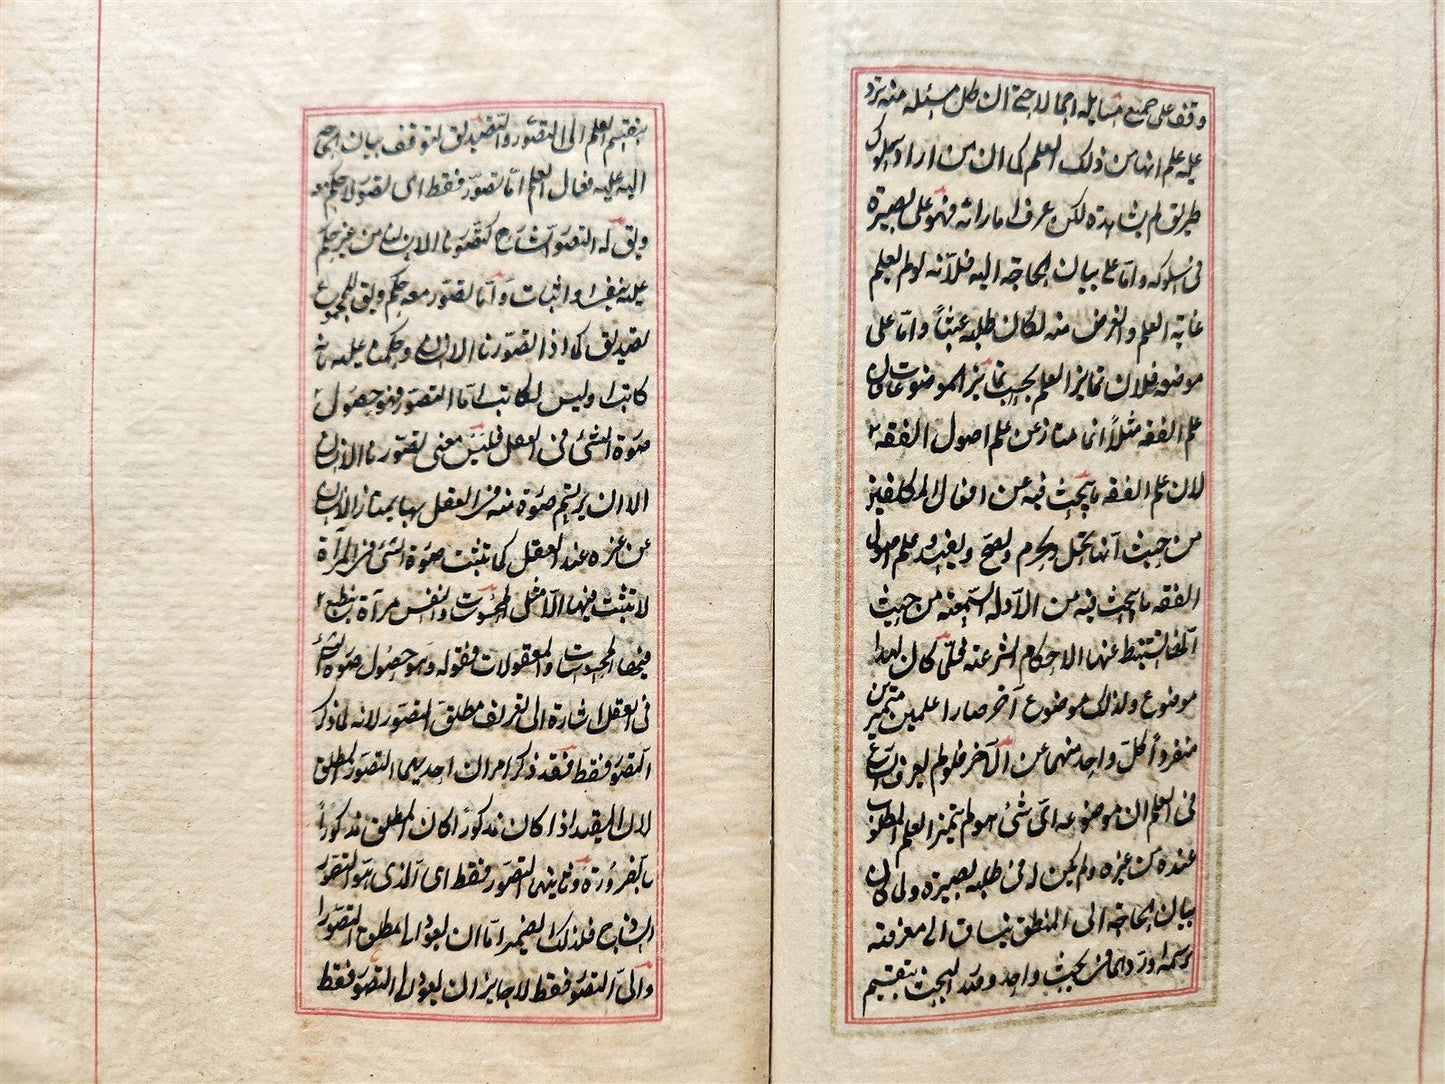 وقف على جميع مسائله اجمالا حتى ان كل مسئلة منه ترد
عليه علم انها من ذلك العلم كما ان من اراد سلوك
طريق لم يشاهده لكن عرف اماراته فهو على بصيرة
فى سلوكه واما على بيان الحاجة اليه فلانه لو لم يعلم
غاية العلم والغرض منه لكان طلبه عبثاً واما على
موضوعه فلان تمايز العلم بحسب تمايز الموضوعات فان
علم الفقه مثلاً انما يمتاز عن علم اصول الفقه
لان علم الفقه يبحث فيه عن افعال المكلفين
من حيث انها تحل وتحرم وتصح وتفسد وعلم اصول
الفقه يبحث فيه عن الادلة السمعية من حيث
انها تستنبط عنها الاحكام الشرعية فلما كان لهذا
موضوع ولذلك موضوع آخر صارا علمين متميزين
منفرداً كل واحد منهما عن الآخر فلو لم يعرف الشارع
فى العلم ان موضوعه اى شئ هو لم يتميز العلم المطلوب
عنده عن غيره ولم يكن له فى طلبه بصيرة ولما كان
بيان الحاجة الى المنطق ينساق الى معرفته
برسمه اوردهما فى بحث واحد وصدر البحث بتقسيم
بتقسيم العلم الى التصور والتصديق لتوقف بيان الحاجة
اليه عليه فقال العلم اما تصور فقط اى تصور لا حكم معه
ويق له التصور الساذج كتصورنا الانسان من غير حكم
عليه بنفى او اثبات واما تصور معه حكم ويق للمجموع
تصديق كما اذا تصورنا الانسان وحكمنا عليه بانه
كاتب او ليس بكاتب اما التصور فهو حصول
صورة الشئ فى العقل فليس معنى تصورنا الانسان
الا ان يرتسم صورة منه فى العقل بها يمتاز الانسان
عن غيره عند العقل كما تثبت صورة الشئ فى المرآة
لا تثبت فيها الا مثل المحسوسات والنفس مرآة تنطبع
فيها مثل المحسوسات والمعقولات فقوله وهو حصول صورة الشئ
فى العقل اشارة الى تعريف مطلق التصور لانه لما ذكر
التصور فقط فقد ذكر امران احديهما التصور المطلق
لان المقيد اذا كان مذكوراً كان المطلق مذكوراً
بالضرورة وثانيهما التصور فقط اى الذى هو التصور
الساذج فلذلك الضمير اما ان يعود الى مطلق التصور
والى التصور فقط لا جايز ان يعود الى التصور فقط